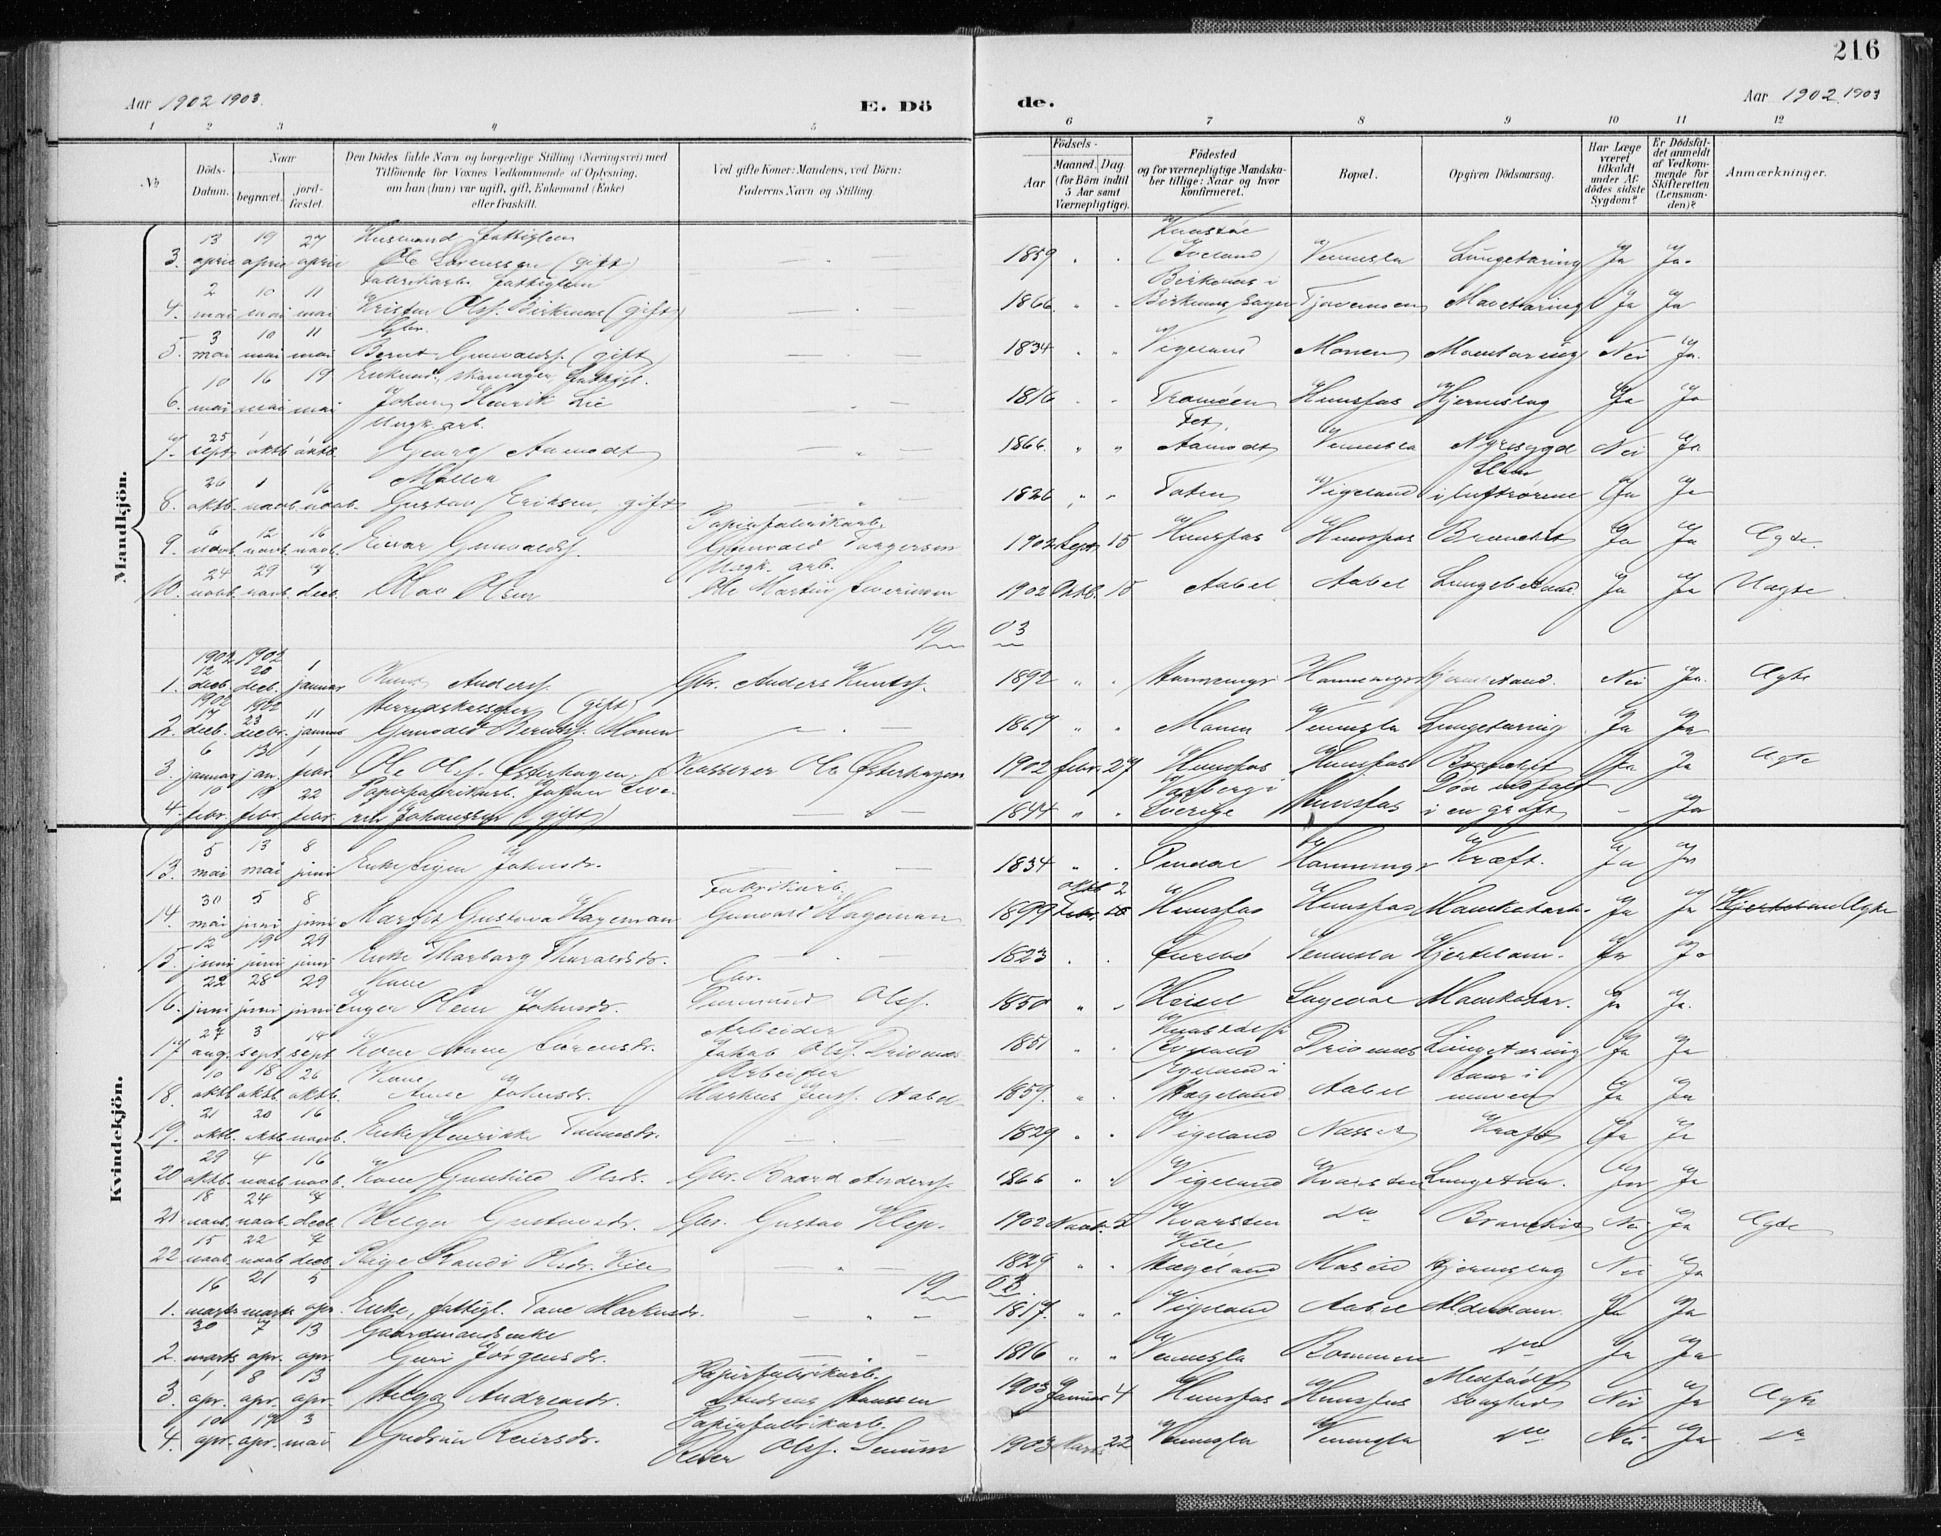 216
Aar 1902 1903.
E. Dö
de.
Aar 1902 1903
1 2 3 4 5 6 7 8 9 10 11 12
No
Döds-Datum.
Naar
begravet.
jord-fæstet.
Den Dödes fulde Navn og borgerlige Stilling (Næringsvei) med
Tilföiende for Voxnes Vedkommende af Oplysning.
om han (hun) var ugift, gift, Enkemand (Enke)
eller fraskilt.
Ved gifte Koner: Mandens, ved Börn:
Faderens Navn og Stilling.
Födsels-
Aar
Maaned. Dag.
(for Börn indtil
5 Aar samt
Værnepligtige).
Födested
og for værnepligtige Mandska-
ber tillige: Naar og hvor
konfirmeret.
Bopæl.
Opgiven Dödsaarsag.
Har Læge
været
tilkaldt
under Af-
dödes sidste
Sygdom?
Er Dödsfal-
det anmeldt
af Vedkom-
mende for
Skifteretten
(Lensman-
den)?
Anmærkninger.
Mandkjön.
3. 13 april 19 april 27 april Husmand fattiglem Ole Sørensen (gift) 1859 (Iveland) Vennesla Lungetæring Ja Ja.
4. 2 mai 10 mai 11 mai Fabrikarb. fattiglem Kristen Olss. Birkenæs (gift) 1866 Birkenæs i Birkenæs sogn Mavetæring Ja Ja
5. 3 mai 10 mai 11 mai Gbr. Bernt Gunvaldss. (gift) 1834 Vigeland Monen Nei Ja.
6. 10 mai 16 mai 19 mai Enkem., skomager, fattigl. Johan Henrik Lie 1816 Tromøen Hunsfos Hjerneslag Ja Ja
7. 25 sept. 1 oktb. 1 oktb. Ungk. arb. Georg Aamodt 1866. Fet, Aamodt Vennesla Nyresygd Nei Ja
8. 26 oktb. 1 novb. 16 novb. Møller Gustav Eriksen, gift 1826 Toten Vigeland Slim i luftrørene Ja Ja
9. 6 novb. 12 novb. 16 novb. Einar Gunvaldss. Papirfabrikarb. Gunvald Torgersen 1902 Septr. 15 Hunsfos Hunsfos Bronchit Ja Ja Egte.
10. 24 novb. 29 novb. 7 decb. Olav Olsen Ungk. arb. Ole Martin Severinsen 1902 Oktb. 15 Aabel Aabel Lungebetænd. Ja Ja Uægte.
1903
1. 1902 12 decb. 1902 20 decb. 1 januar Knut Anderss. Gbr. Anders Knutss. 1892 Nei Ja. Egte
2. 1902 17 decb. 1902 23 decbr. 11 januar Herredskasserer (gift) Gunvald Berntss. Monen 1867 Monen Vennesla Lungetæring Ja Ja
3. 6 januar 13 jan. 1 febr. Ole Olss. Østerhagen. Kasserer Ole Østerhagen 1902 febr. 27 Hunsfos Hunsfos Bronchit Ja Ja Ægte
4. 10 febr. 19 febr. 22 febr. Papirfabrikarb. Johan Johansson (gift) 1844 Varberg i Sverige Hunsfos Død ved fald i en grøft – Ja
Kvindekjön.
13. 5 mai 13 mai 8 juni Enke Johnsdr. 1834 Kræft. Ja Ja
14. 30 mai 5 juni 8 juni Margit Gustava Hageman Fabrikarb. Gunvald Hageman 1899 oktb 2 Hunsfos Hunsfos Ja Ja Ægte
15. 12 juni 19 juni 29 juni Enke Tharborg Tharaldsdr. 1823 Vennesla Hjertelam. Ja Ja
16. 22 juni 28 juni 29 juni Kone Inger Oline Johnsdr. Gbr. Olss. 1850 Heisel Ja Ja.
17 27 aug. 3 sept. 14 sept Kone Anne Sørensdr. Arbeider Jakob Olss. Drivenes 1851 Drivenes Lungetæring Ja Ja
18. 10 oktb. 18 oktb. 26 oktb. Kone Anne Johnsdr. Arbeider Markus Jenss. Aabel 1859. Hægeland Aabel Ja Ja
19. 21 oktb. 20 oktb. 16 novb. Enke Henrikke Tønnesdr. 1829 Vigeland Kræft Ja Ja
20 29 oktb. 4 novb. 16 novb. Kone Gunhild Olsdr. Gbr. Baard Anderss. 1866 Vigeland Kvarsten Ja Ja
21. 18 novb. 24 novb. 7 decb. Helga Gustavsdr. Gbr. Gustav Klep. 1902 Novb. 5 Kvarsten do Bronchit Nei Ja Egte
22 15 novb. 22 novb. 7 decb. Pige Randi Olsdr. Kile 1829 Kile Hægeland Moseid Hjerneslag Nei Ja
1903
1. 16 marts 21 marts 5 apr. Enke, fattigl. Tone Markusdr. 1817. Vigeland Aabel Alderdom. Ja Ja
2. 30 marts 7 apr. 13 apr. Gaardmandsenke Guri Jørgensdr. 1816 Vennesla Bommen do Ja Ja
3 1 apr. 8 apr. 13 apr Helga Andreasdr. Papirfabrikarb. Andreas Hanssen 1903 Januar 4 Hunsfos Hunsfos Medfødt svaghed Nei Ja Egte
4. 10 apr. 17 apr. 3 mai Gudrun Reiersdr. Papirfabrikarb. Reier Olss. 1903 Marts 22 Vennesla Vennesla do Nei Ja do